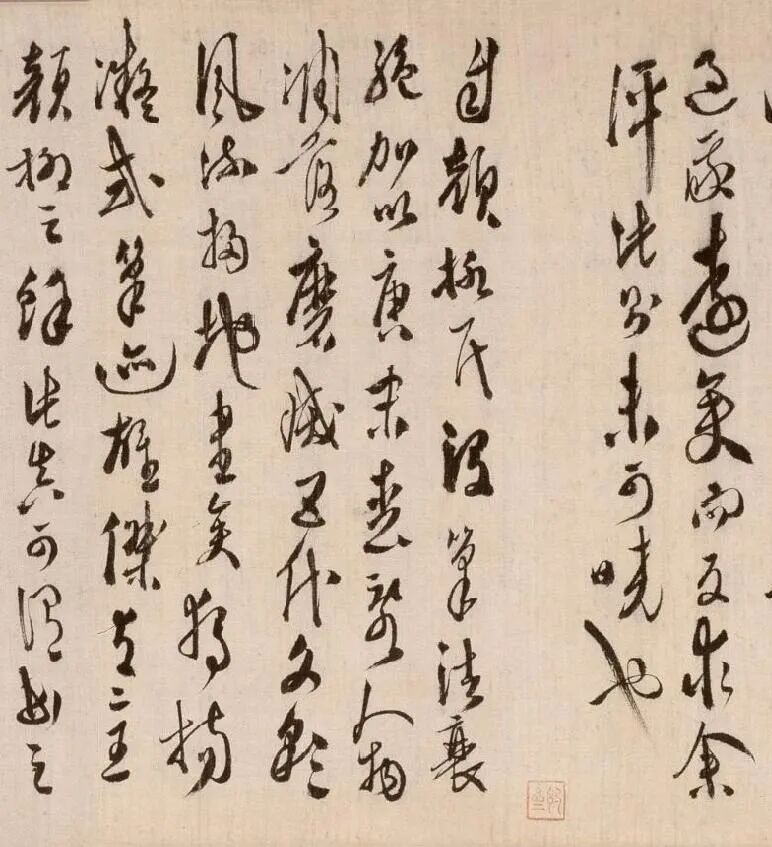 過我遠矣而反求余
評此則未可曉也
自顏柳氏沒筆法衰
絕加以唐末喪亂人物
凋落磨滅五代文采
風流掃地盡矣獨楊
凝式筆迹雄傑有二王
顏柳之餘此真可謂書之